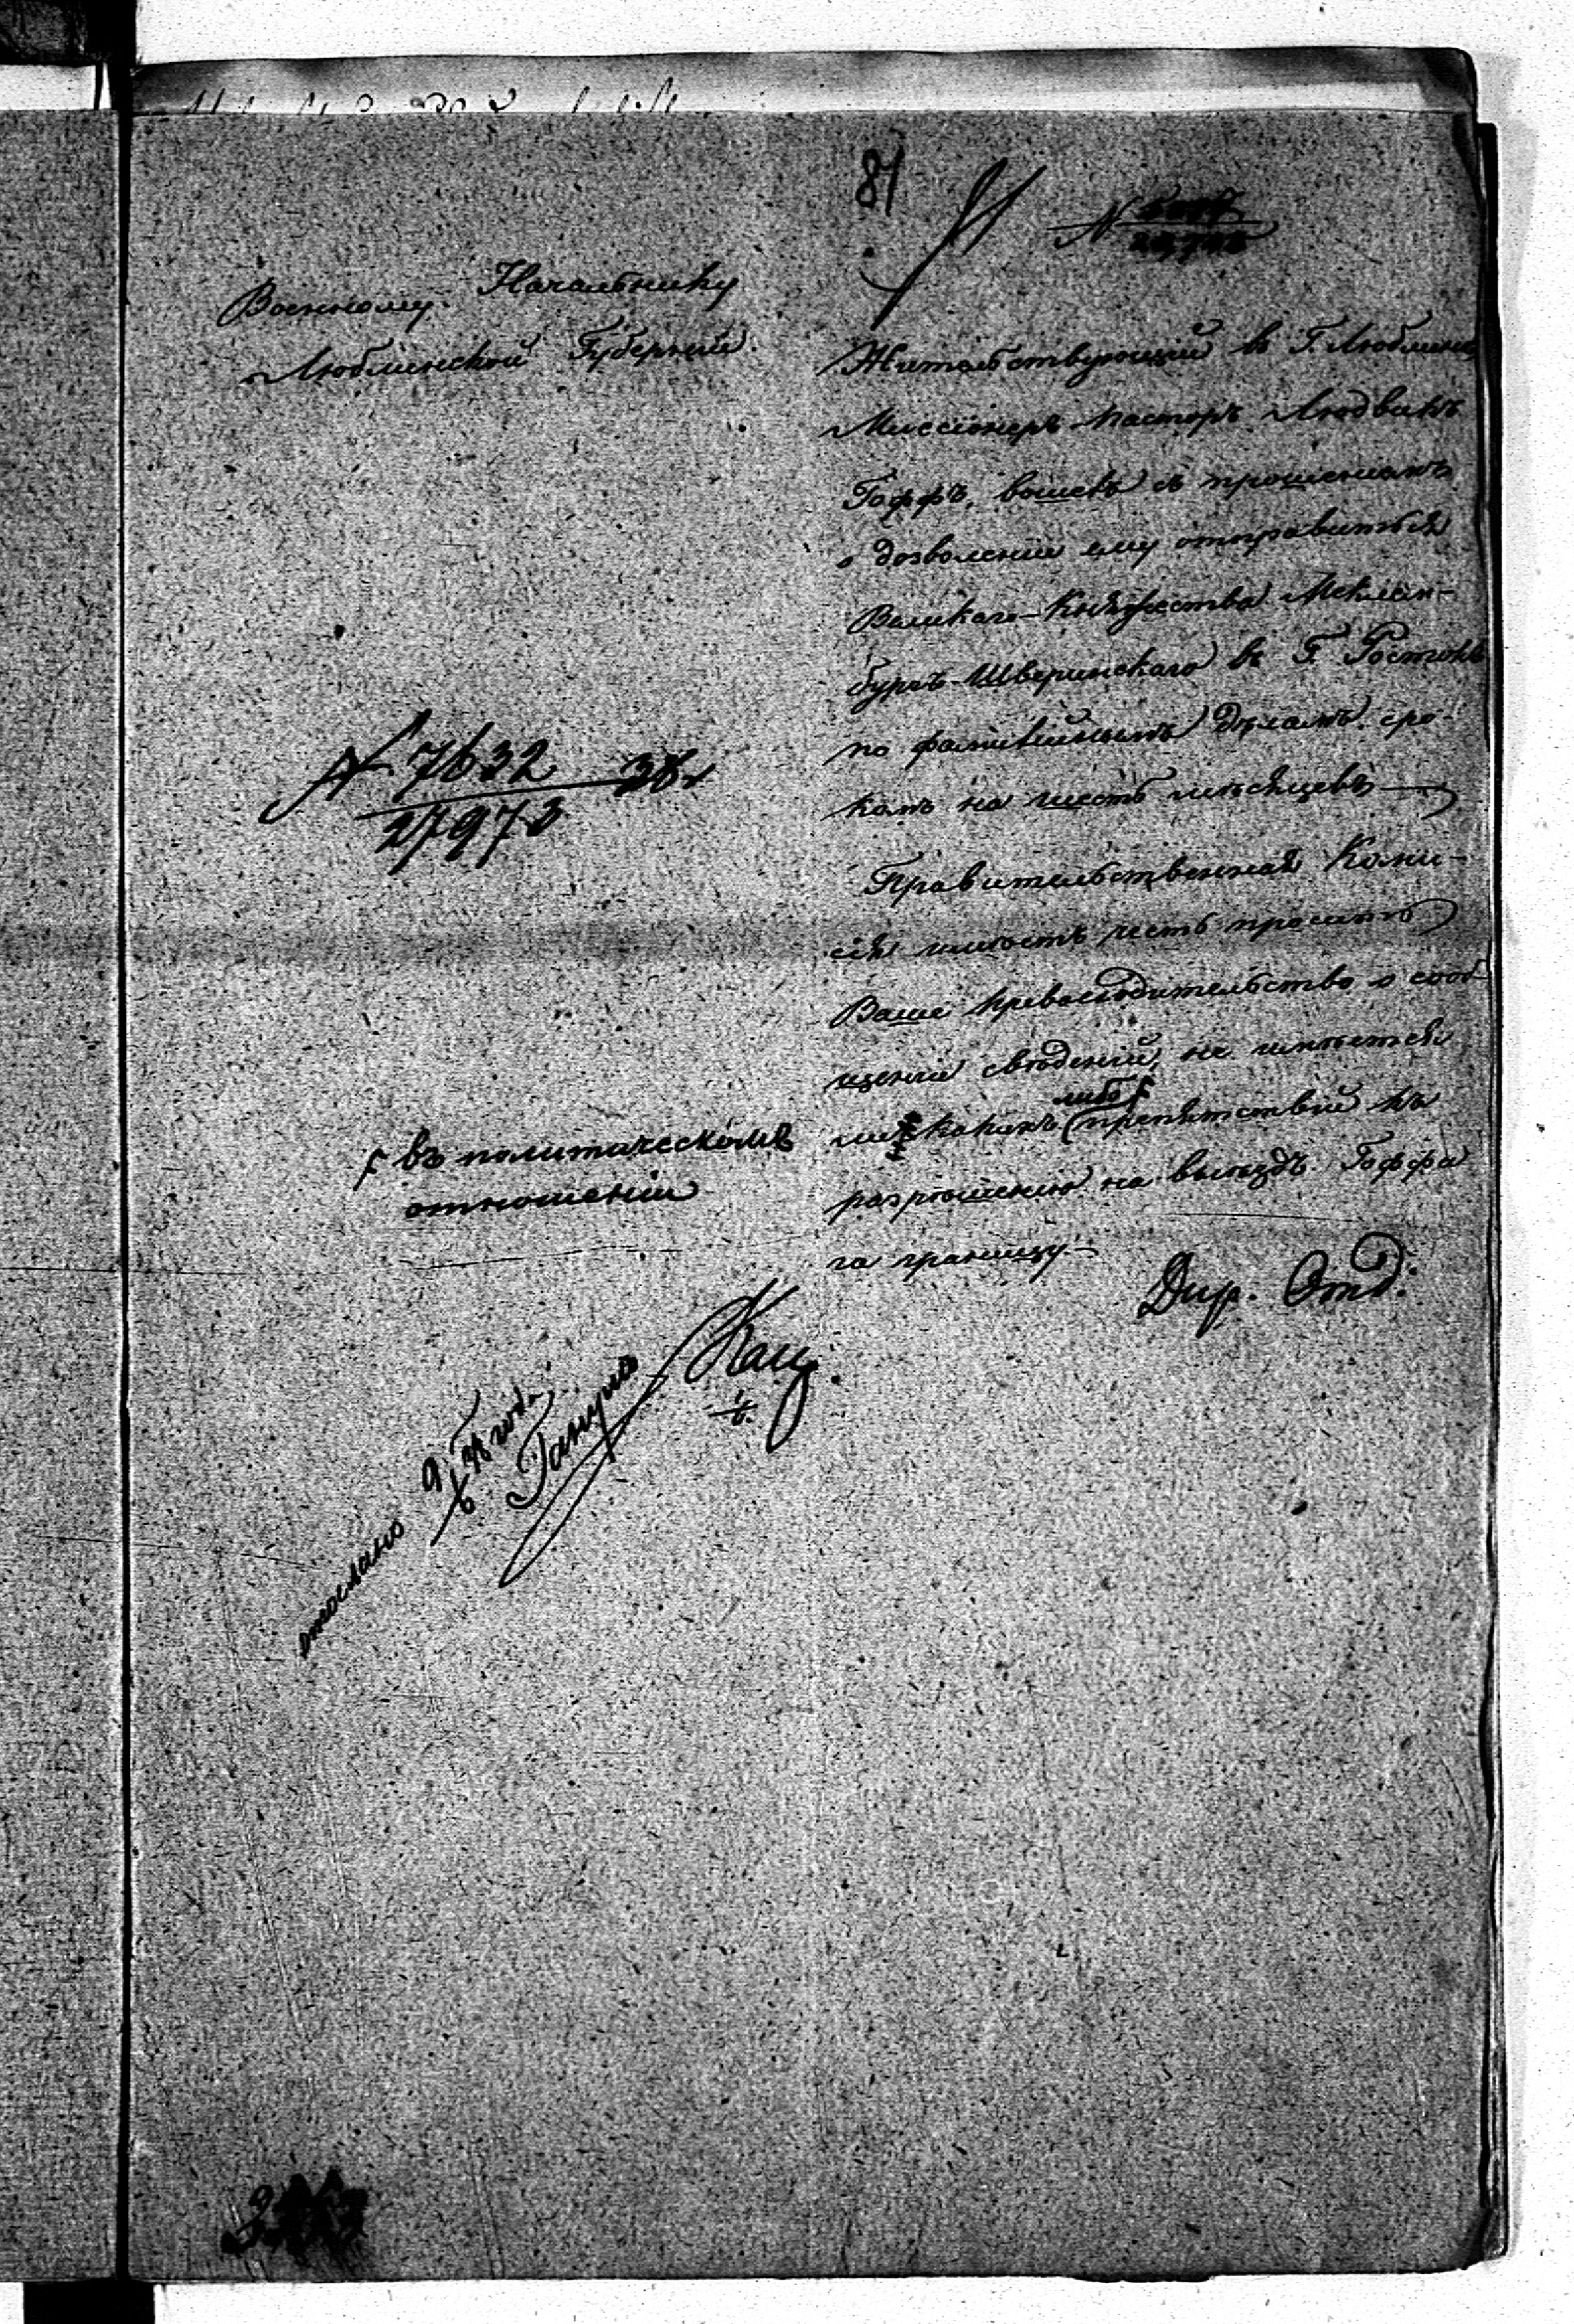 81
Военному Начальнику
Люблинской Губерніи.
Жительствующій въ Г. Люблинѣ
Миссіонеръ Пасторъ Людвикъ
Гоффъ, вошевъ съ прошеніемъ
о дозволеніи ему отправиться
Великаго-Княжества Меклен-
бургъ-Шверинскаго въ Г. Ростокъ
по фамилійнымъ дѣламъ сро-
комъ на шесть мѣсяцевъ
№ 7632
27973
Правительственная Коми-
сія имѣетъ честь просить
Ваше Превосходительство о сооб-
щеніи свѣденій, не имѣется
ли какихъ либо препятствій къ
въ политическомъ
отношеніи
разрѣшенію на выѣздъ Гоффа
за границу.
Дир. Отд.
Канц.
отослано 9/6 года